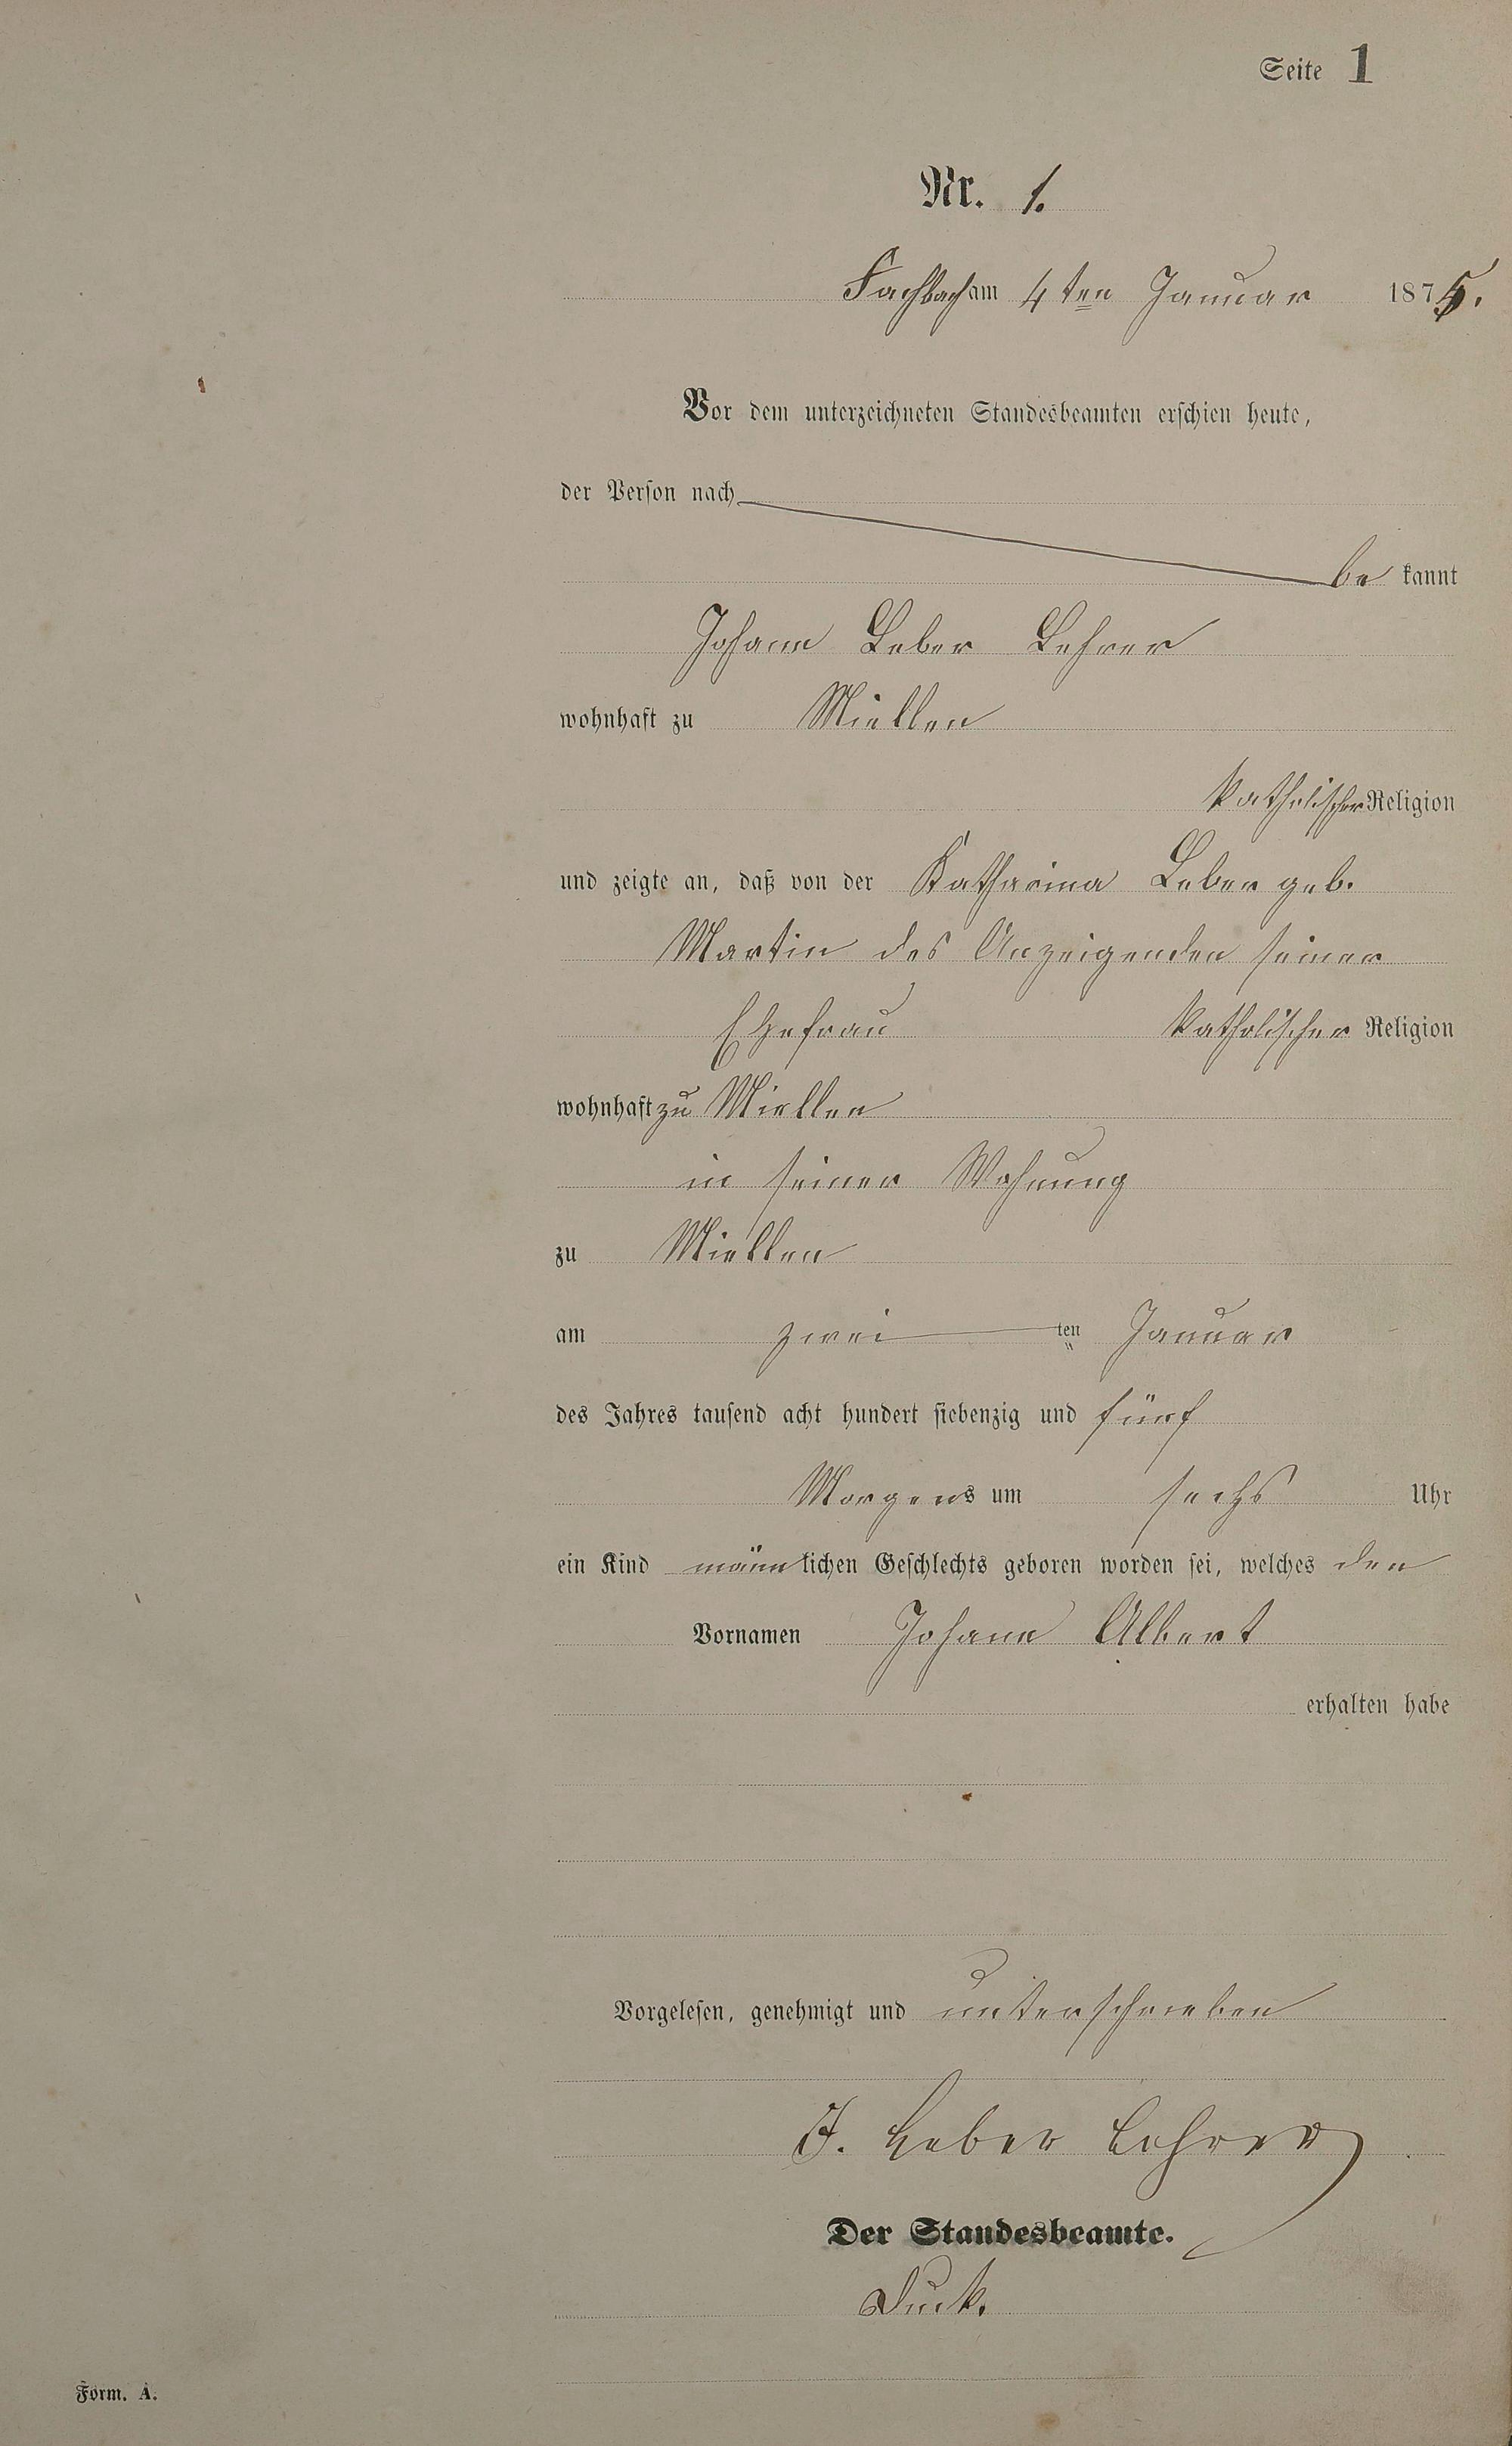 Seite 1
Nr. 1.
Fachbach am 4ten Januar 1875.
Vor dem unterzeichneten Standesbeamten erschien heute,
der Person nach
be kannt
Johann Leber Lehrer
wohnhaft zu Miellen
katholischer Religion
und zeigte an, daß von der Katharina Leber geb.
Martin des Anzeigenden seiner
Ehefrau katholischer Religion
wohnhaft zu Miellen
in seiner Wohnung
zu Miellen
am zwei ten Januar
des Jahres tausend acht hundert siebenzig und fünf
Morgens um sechs Uhr
ein Kind männlichen Geschlechts geboren worden sei, welches den
Vornamen Johann Albert
erhalten habe
Vorgelesen, genehmigt und unterschrieben
J. Leber Lehrer
Der Standesbeamte.
Duck.
Form. A.